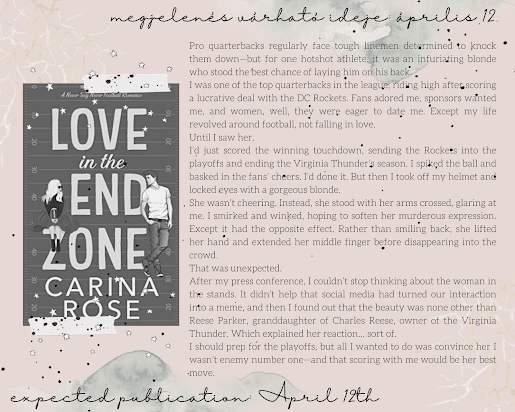 megjelenés várható ideje április 12.
Pro quarterbacks regularly face tough linemen determined to knock
them down—but for one hotshot athlete, it was an infuriating blonde
who stood the best chance of laying him on his back.
I was one of the top quarterbacks in the league, riding high after scoring
a lucrative deal with the DC Rockets. Fans adored me, sponsors wanted
me, and women, well, they were eager to date me. Except my life
revolved around football, not falling in love.
Until I saw her.
I'd just scored the winning touchdown, sending the Rockets into the
playoffs and ending the Virginia Thunder's season. I spiked the ball and
basked in the fans' cheers. I'd done it. But then I took off my helmet and
locked eyes with a gorgeous blonde.
She wasn't cheering. Instead, she stood with her arms crossed, glaring at
me. I smirked and winked, hoping to soften her murderous expression.
Except it had the opposite effect. Rather than smiling back, she lifted
her hand and extended her middle finger before disappearing into the
crowd.
That was unexpected.
After my press conference, I couldn't stop thinking about the woman in
the stands. It didn't help that social media had turned our interaction
into a meme, and then I found out that the beauty was none other than
Reese Parker, granddaughter of Charles Reese, owner of the Virginia
Thunder. Which explained her reaction... sort of.
I should prep for the playoffs, but all I wanted to do was convince her I
wasn't enemy number one—and that scoring with me would be her best
move.
A Never Say Never Football Romance
LOVE
in the
END
ZONE
CARINA
ROSE
expected publication: April 12th